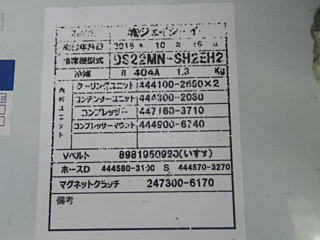 ㈱ジェイシイ
2018 年 10 月
冷凍機型式 9S22MN-SH2EH2
冷媒 R 404A 1.3 Kg
クーリングユニット 444100-2650×2
コンデンサーユニット
コンプレッサー 447160-3710
コンプレッサーマウント 444900-6740
Vベルト 8981950920(いすゞ)
ホースD 444580-3100 S 444570-3270
マグネットクラッチ 247300-6170
備考